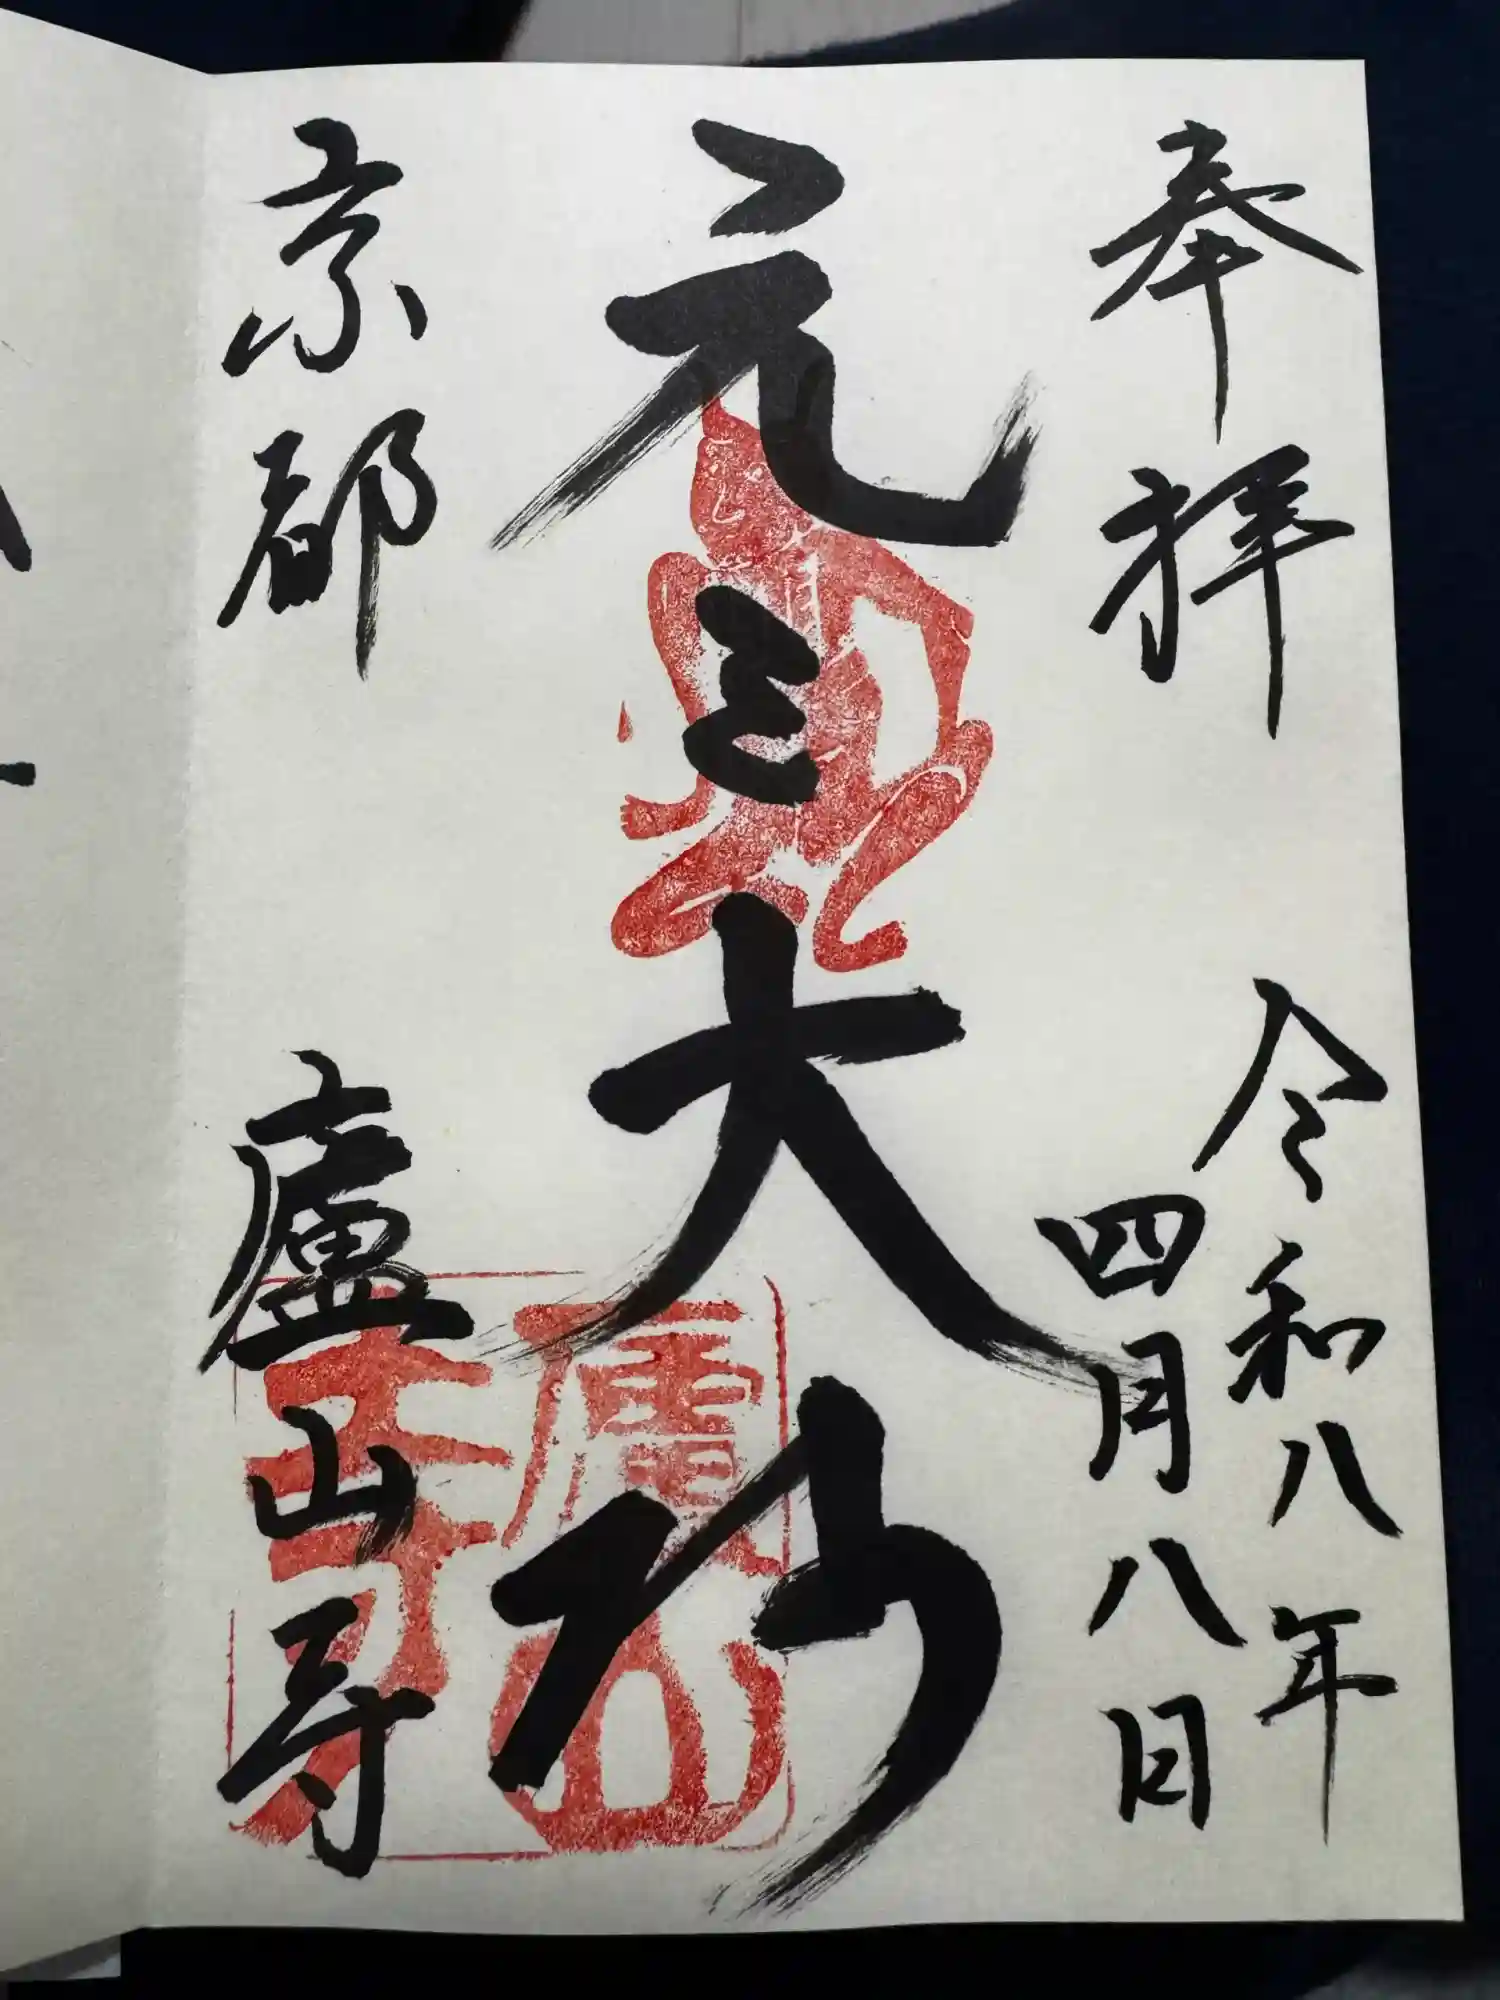 奉拝
令和八年
四月八日
元三大師
京都
廬山寺
廬山
寺